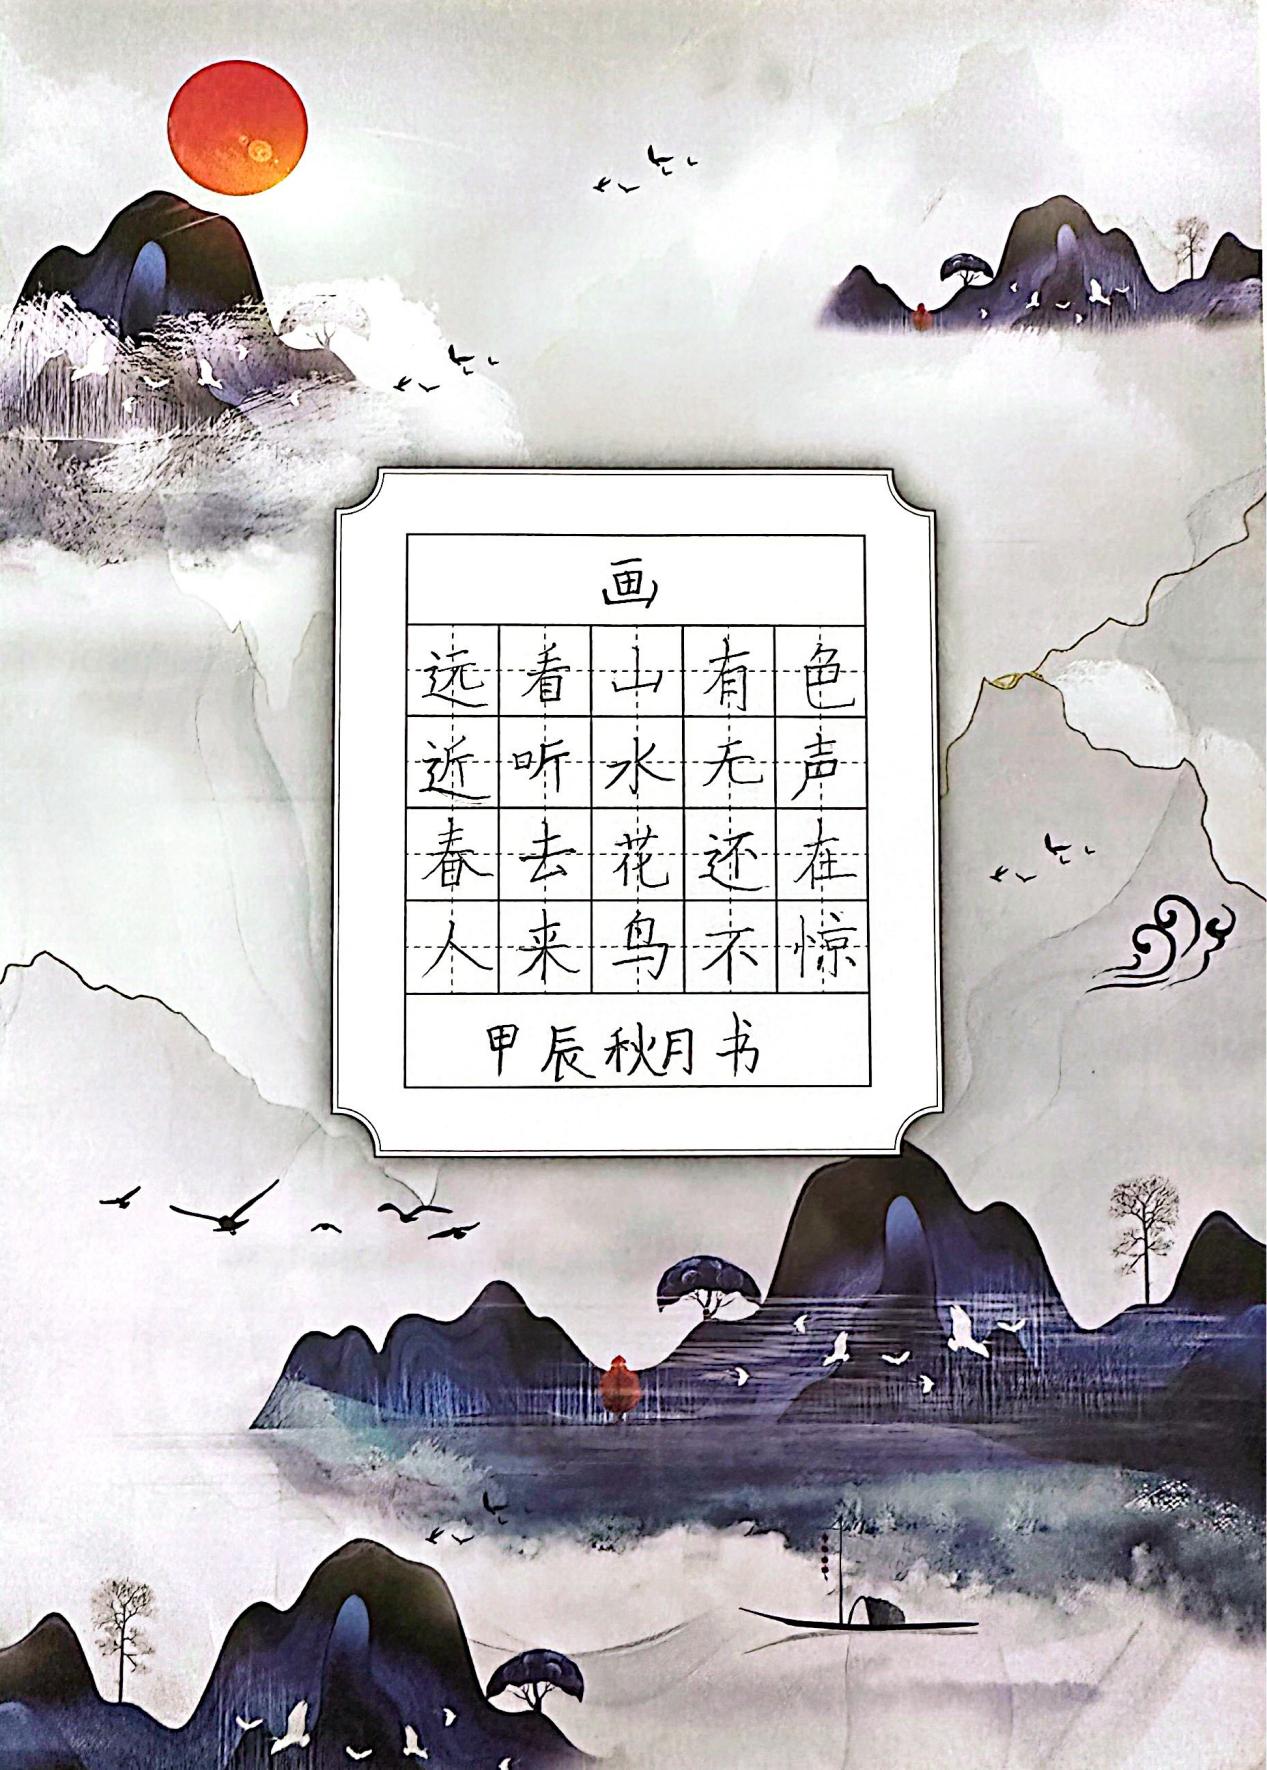 画
远看山有色
近听水无声
春去花还在
人来鸟不惊
甲辰秋月书